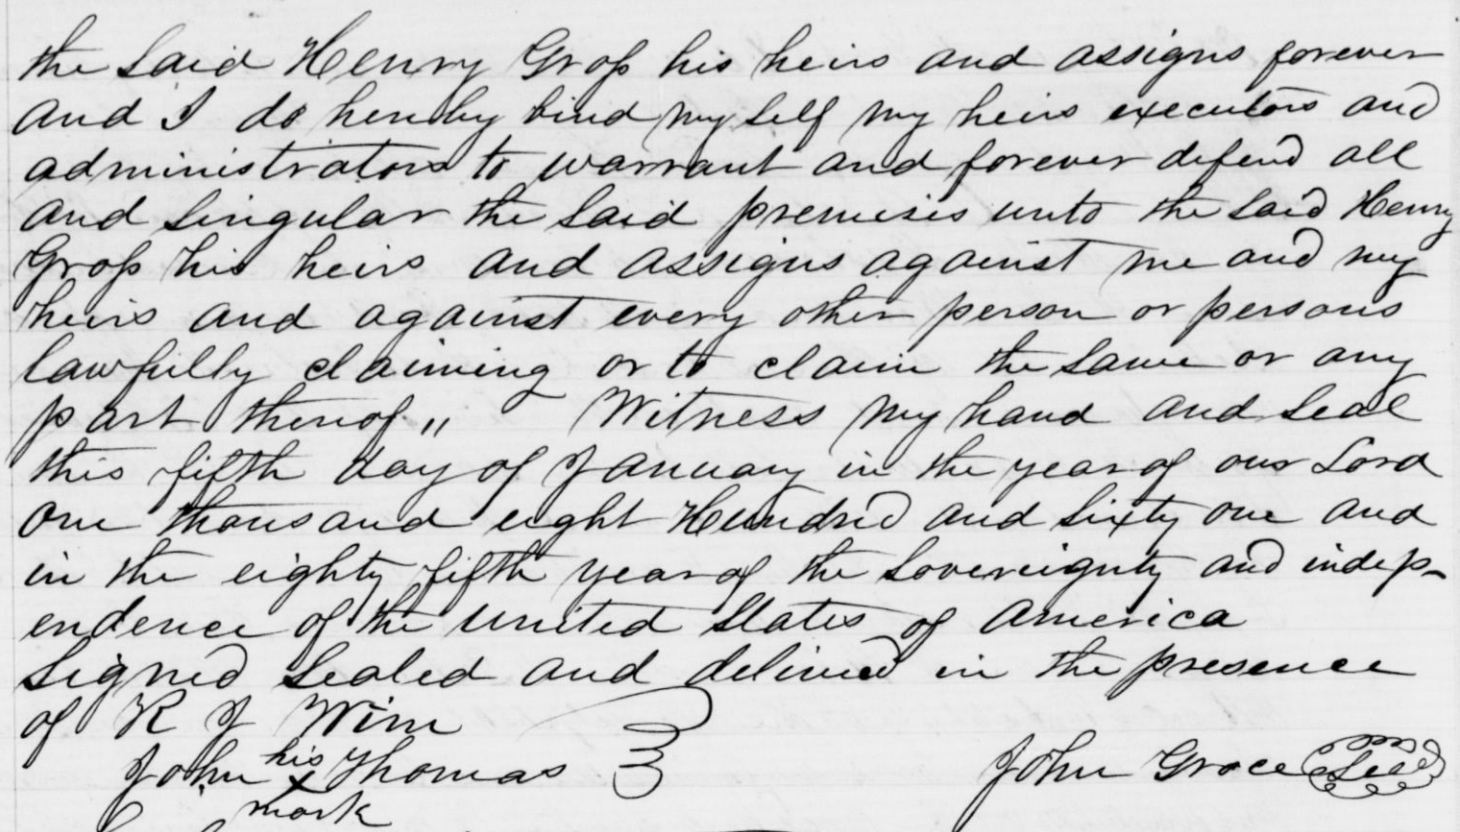 the said Henry Gross his heirs and assigns forever
and I do hereby bind my self my heirs executors and
administrators to warrant and forever defend all
and singular the said premises unto the said Henry
Gross his heirs and assigns against me and my
heirs and against every other person or persons
lawfully claiming or to claim the same or any
part thereof „ Witness my hand and seal
this fifth day of January in the year of our Lord
one thousand eight Hundred and sixty one and
in the eighty fifth year of the sovereignty and indep-
endence of the united States of America
Signed Sealed and delivered in the presence
of R J
John his x Thomas John Grace Seal
mark